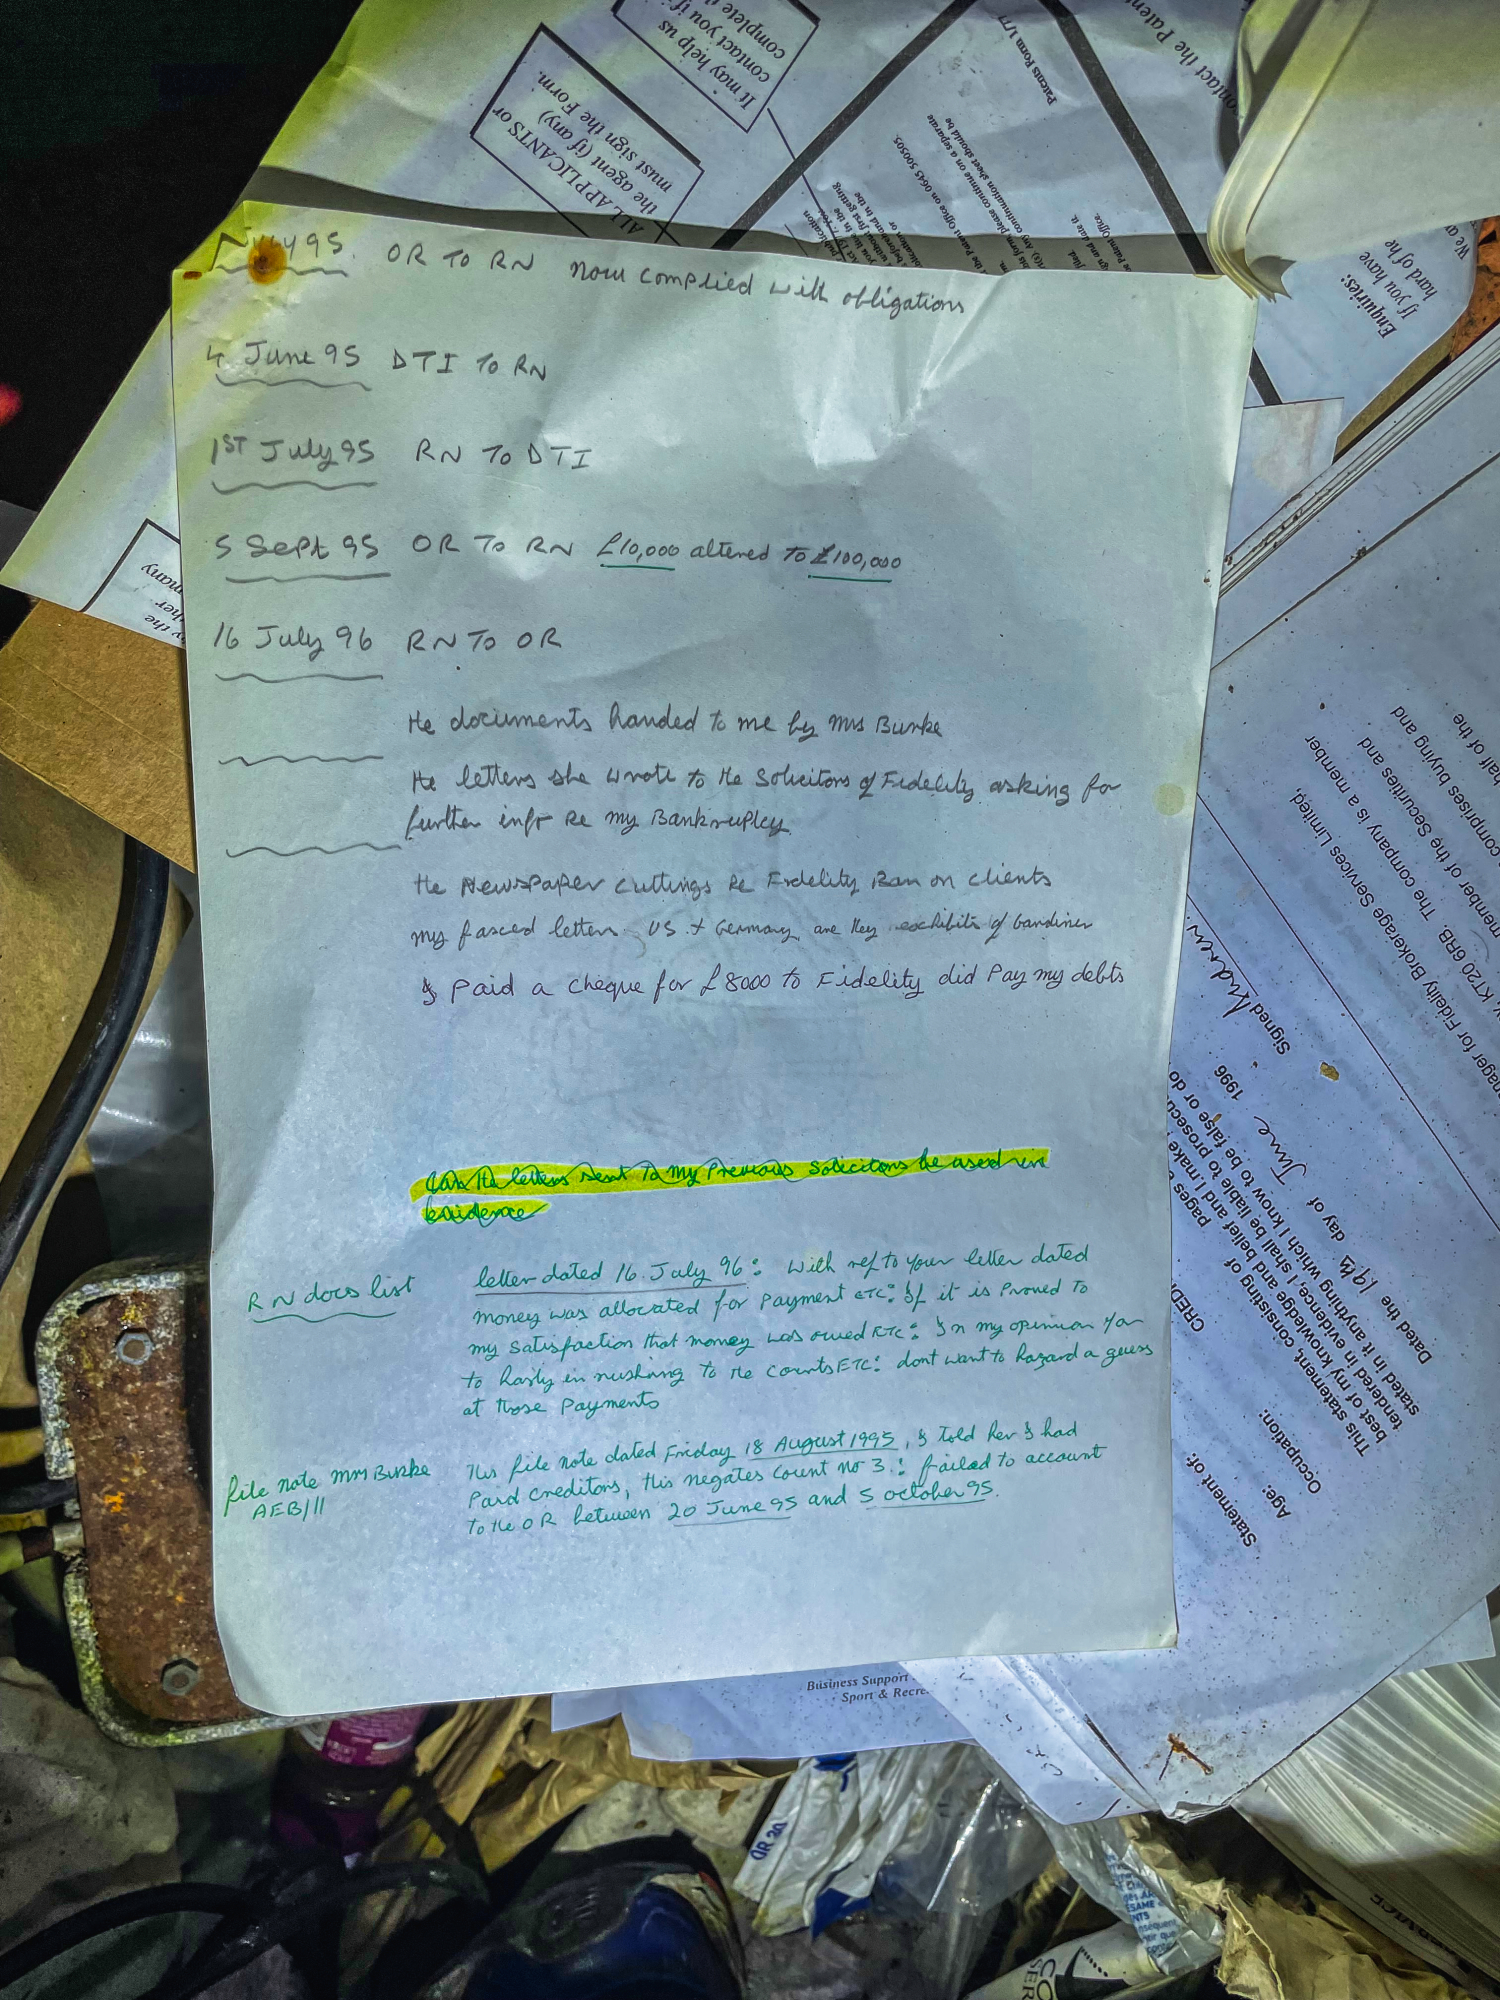 complete
contact you if
It may help us
ALL APPLICANTS or
the agent (if any)
must sign the Form.
Patents Form 1/77
contact the Patent
the Patent Office on 0645 500505.
this form please continue on a separate
continuation sheet should be
Enquiries:
If you have
hard of he
We a
95. OR TO RN now complied with obligations
4 June 95 DTI TO RN
1ST July 95 RN TO DTI
5 Sept 95 OR TO RN £10,000 altered TO £100,000
16 July 96 RN TO OR
He documents handed to me by Mrs Burke
He letters she wrote to He Solicitors of Fidelity asking for
further info Re my Bankruptcy
He Newspaper cuttings Re Fidelity Ban on clients
my faxed letters. US + Germany, are they exhibits of Gardiner
I Paid a cheque for £8000 to Fidelity did Pay my debts
Can He letters sent To my Previous Solicitors be used in
Evidence
RN docs list
letter dated 16. July 96: With ref to your letter dated
money was allocated for payment ETC: If it is Proved to
my satisfaction that money was owed ETC: In my opinion You
to hasty in rushing to He Courts ETC: dont want to hazard a guess
at those Payments
file note Mrs Burke
AEB/11
This file note dated Friday 18 August 1995, I told her I had
Paid creditors, this negates Count no 3: failed to account
to He OR between 20 June 95 and 5 October 95.
half of the
comprises buying and
member of the Securities and
KT20 6RB. The company is a member
nager for Fidelity Brokerage Services Limited,
Signed Andrew
Dated the 19th day of June 1996
stated in it anything which I know to be false or do
tendered in evidence, I shall be liable to prosecu
best of my knowledge and belief and I make
This statement, consisting of pages
Occupation: CREDI
Age:
Statement of:
Business Support
Sport & Recre